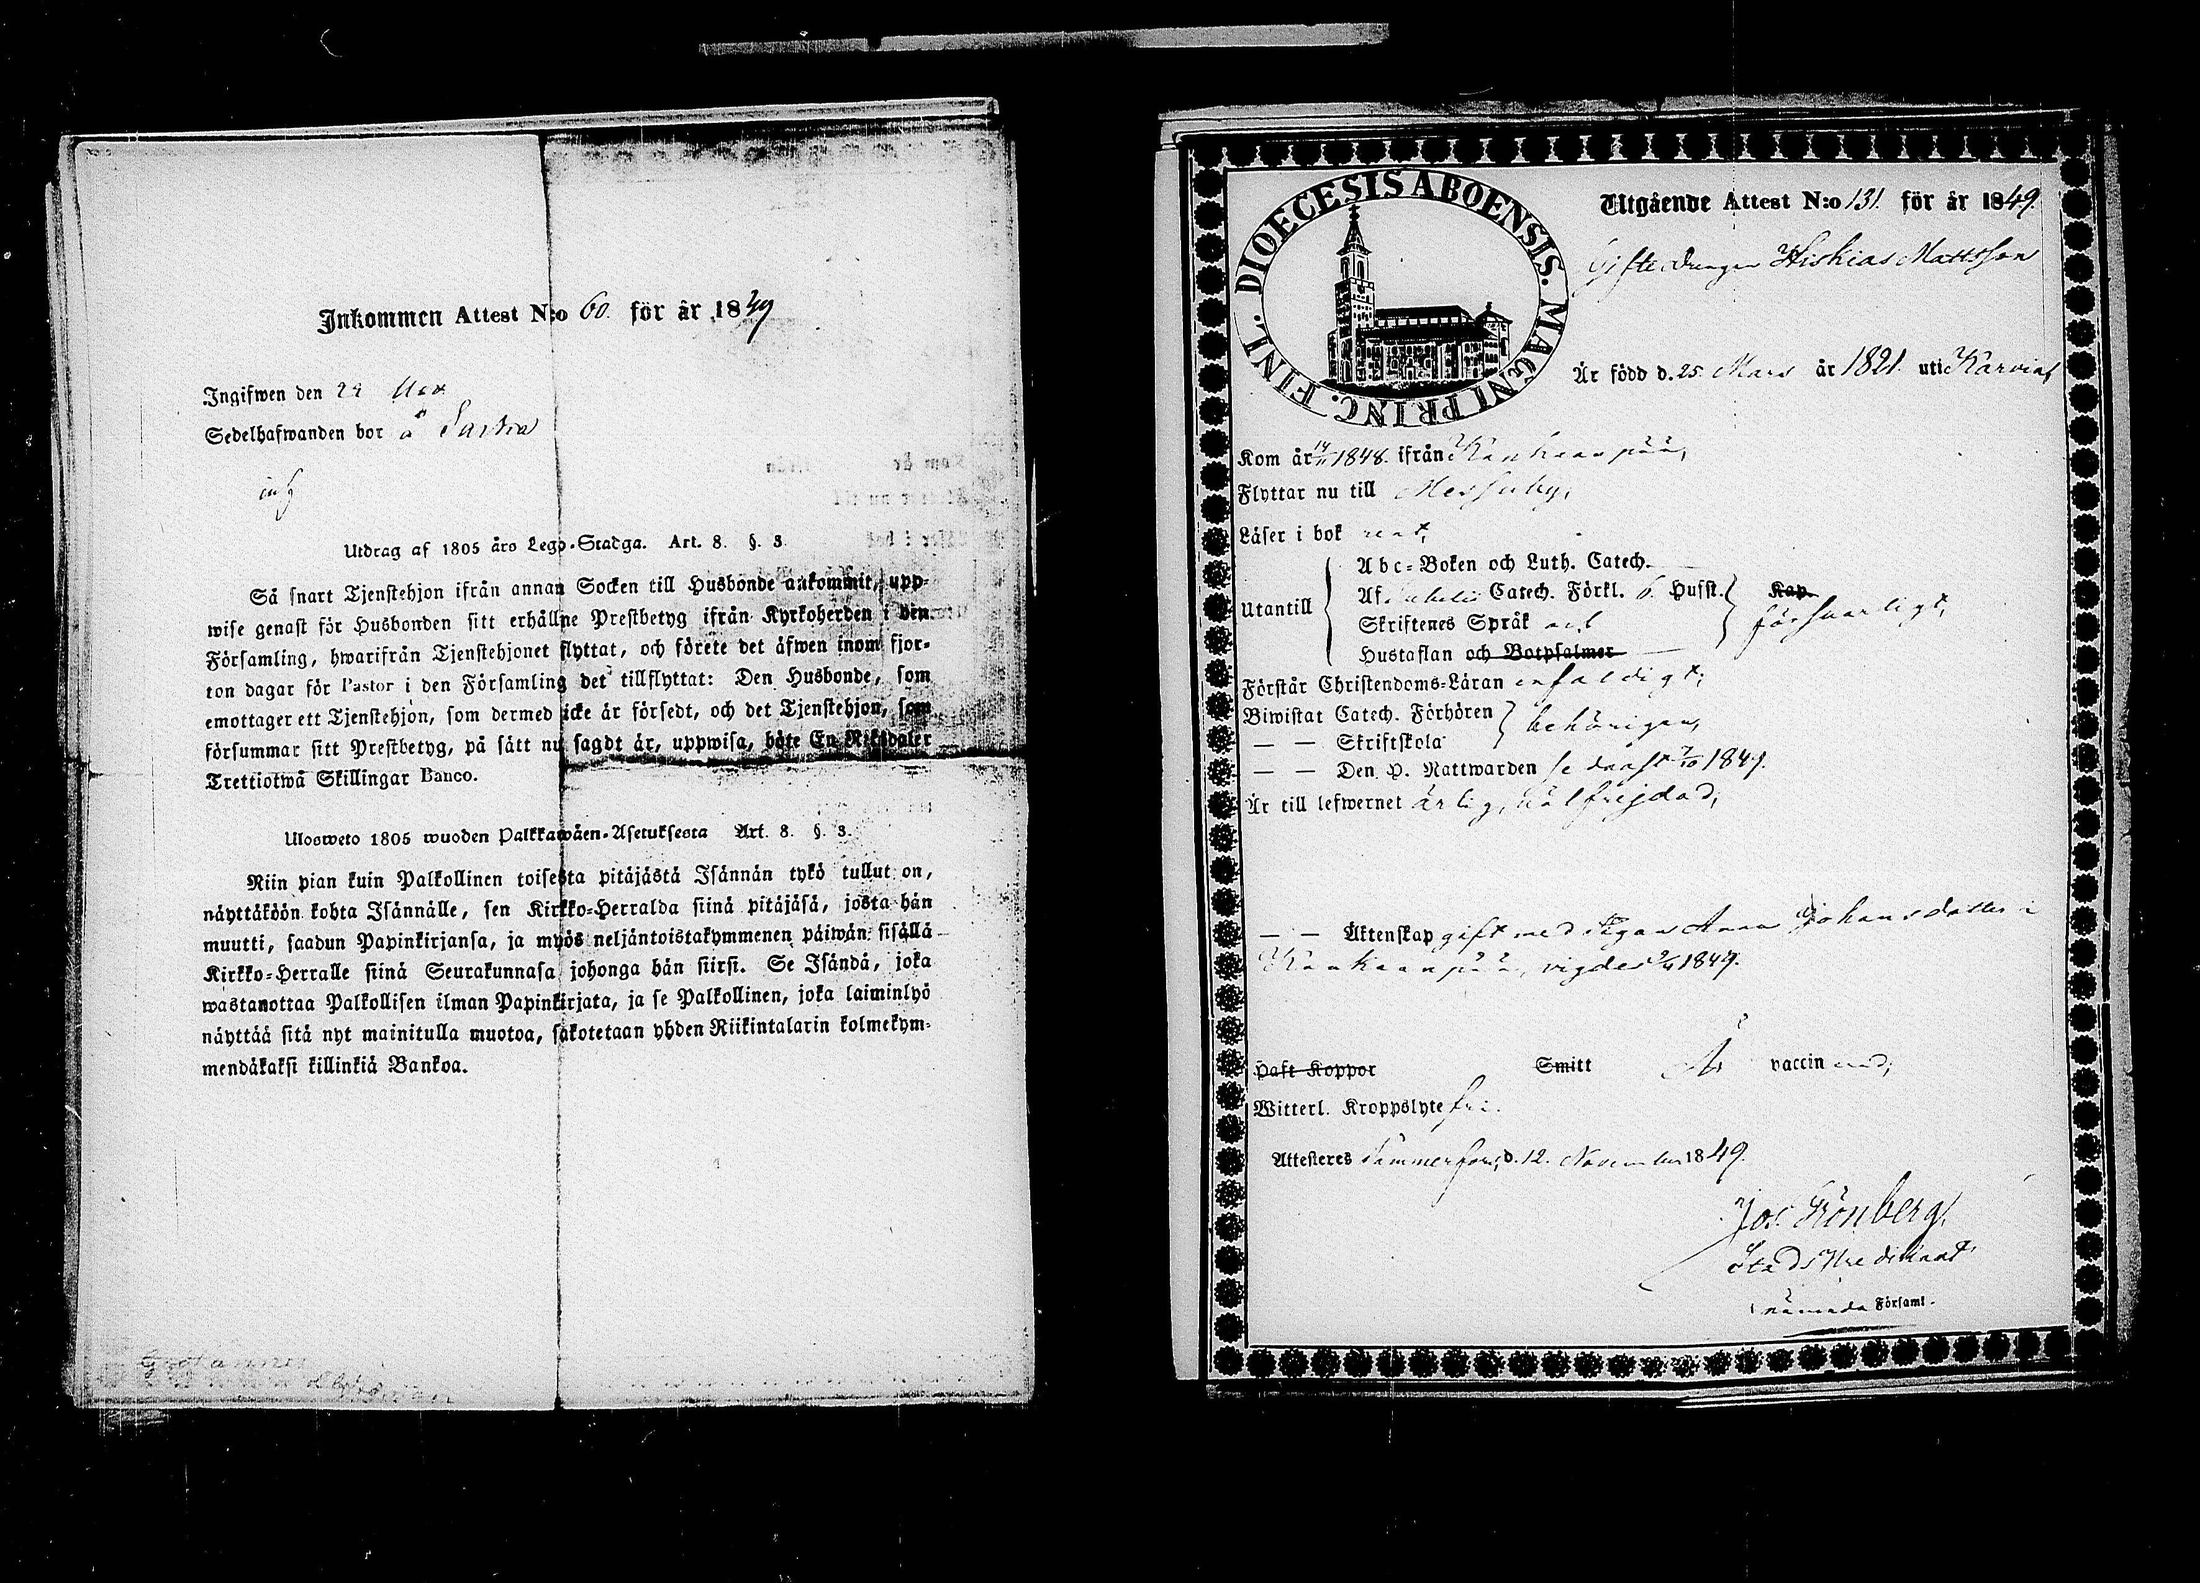 Inkommen Attest N:o 60. för år 1849
Ingifwen den 24
Sedelhafwanden bor å
Utdrag af 1805 års Lego-Stadga. Art. 8. §. 3.
Så snart Tjenstehjon ifrån annan Socken till Husbonde ankommit, upp-
wise genast för Husbonden sitt erhållne Prestbetyg ifrån Kyrkoherden i den
Församling, hwarifrån Tjenstehjonet flyttat, och förete det äfwen inom fjor-
ton dagar för Pastor i den Församling det tillflyttat: Den Husbonde, som
emottager ett Tjenstehjon, som dermed icke är försedt, och det Tjenstehjon, som
försummar sitt Prestbetyg, på sätt nu sagdt är, uppwisa, böte En Riksdaler
Trettiotwå Skillingar Banco.
Ulosweto 1805 wuoden Palkkawäen-Asetuksesta Art. 8. §. 3.
Niin pian kuin Palkollinen toisesta pitäjästä Isännän tykö tullut on,
näyttäköön kohta Isännälle, sen Kirkko-Herralda siinä pitäjäsä, josta hän
muutti, saadun Papinkirjansa, ja myös neljäntoistakymmenen päiwän sisällä
Kirkko-Herralle siinä Seurakunnasa johonga hän siirsi. Se Isändä, joka
wastanottaa Palkollisen ilman Papinkirjata, ja se Palkollinen, joka laiminlyö
näyttää sitä nyt mainitulla muotoa, sakotetaan yhden Riikintalarin kolmekym-
mendäkaksi killinkiä Bankoa.
DIOECESIS ABOENSIS. MAGNI PRINC. FINL.
Utgående Attest N:o 131. för år 1849.
Gifte Drengen Hiskias Mattsson
Är född d. 25 Mars år 1821. uti Karvia,
Kom år 1848. ifrån Kankaanpää,
Flyttar nu till Messuby,
Läser i bok rent,
Utantill
Abc-Boken och Luth. Catech.
Af Catech. Förkl. 6. Husst.
Skriftenes Språk och
Hustaflan och Botpsalmer
Kap.
försvarligt,
Förstår Christendoms-Läran enfaldigt,
Biwistat Catech. Förhören
— — Skriftskola
behörigen,
— — Den H. Nattwarden sednast 7/10 1849.
Är till lefwernet ärlig, välfrejdad,
— — Äktenskap gift med Pigan Anna Johansdotter i
Kankaanpää, vigder 1849.
Haft Koppor Smitt Är vaccinerad;
Witterl. Kroppslyte fri.
Attesteres Tammerfors, d. 12. November 1849.
Jos. Grönberg,
Stads Predikant
i nämnda Församl.